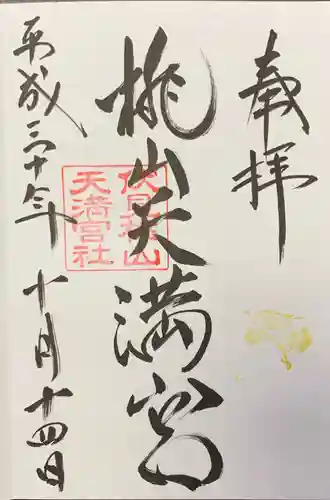 奉拝
桃山天満宮
伏見桃山
天満宮社
平成三十年十月十四日